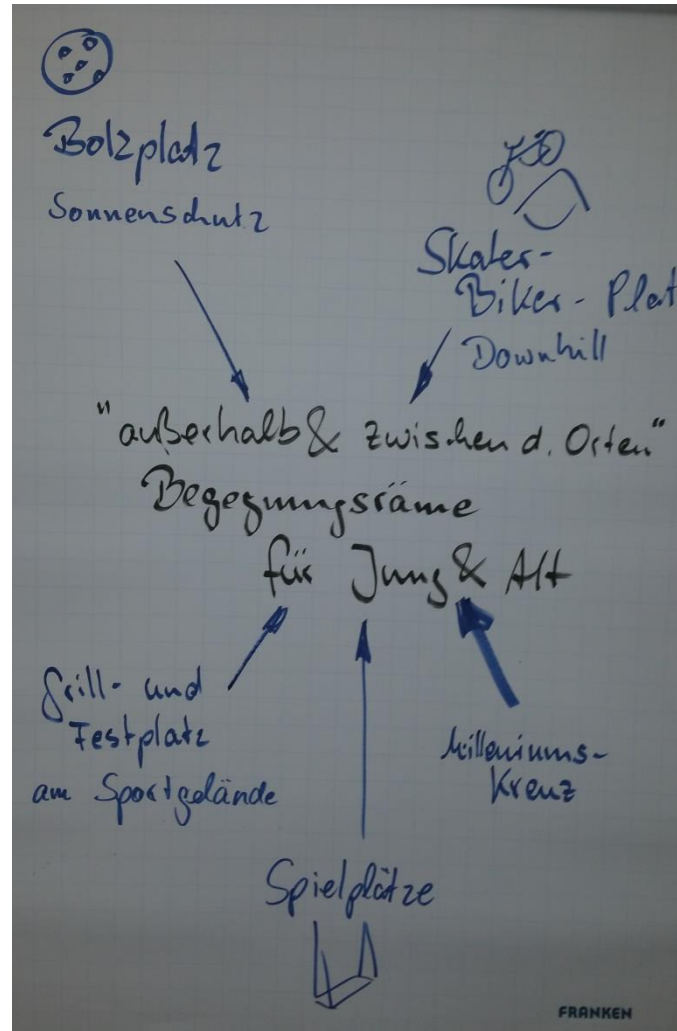 Bolzplatz
Sonnenschutz
Skater-
Biker- Plat
Downhill
"außerhalb & zwischen d. Orten"
Begegnungsräme
für Jung & Alt
Grill- und
Festplatz
am Sportgelände
Milleniums-
Kreuz
Spielplätze
FRANKEN